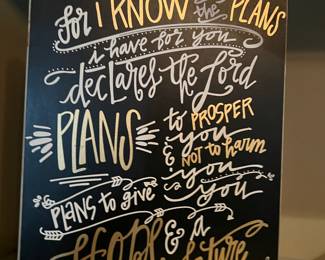 for I KNOW the PLANS
i have for you
declares the Lord
PLANS to PROSPER
you
& NOT to harm
you
PLANS to give you
HOPE & a
future